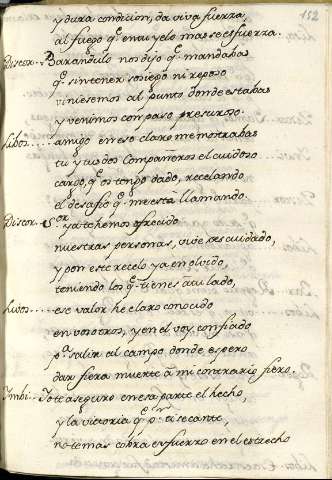 152
y dura condicion, da viva fuerza,
al fuego q^e en tu yelo mas se esfuerza.
Discor. Barandulo nos dijo q^e mandabas
q^e sin tener sosiego ni reposo
viniesemos al punto donde estabas
y venimos con paso presuroso.
amigo en eso claro me mostrabas
tu y tus dos Compañeros el cuidoso
cargo, q^e os tengo dado, recelando
el desafio q^e me está llamando.
Discor. S^or ya te hemos ofrecido
nuestras personas, vive sin cuidado,
y pon este recelo ya en olvido,
teniendo los q^e tienes a tu lado,
ese valor he claro conocido
en vosotros, y en el voy confiado
p^a salir al campo donde espero
dar fiera muerte a mi contrario fiero,
Imbi. Yo te aseguro en esa parte el hecho,
y la victoria q^e p^r
no temas cobra esfuerzo en el estrecho